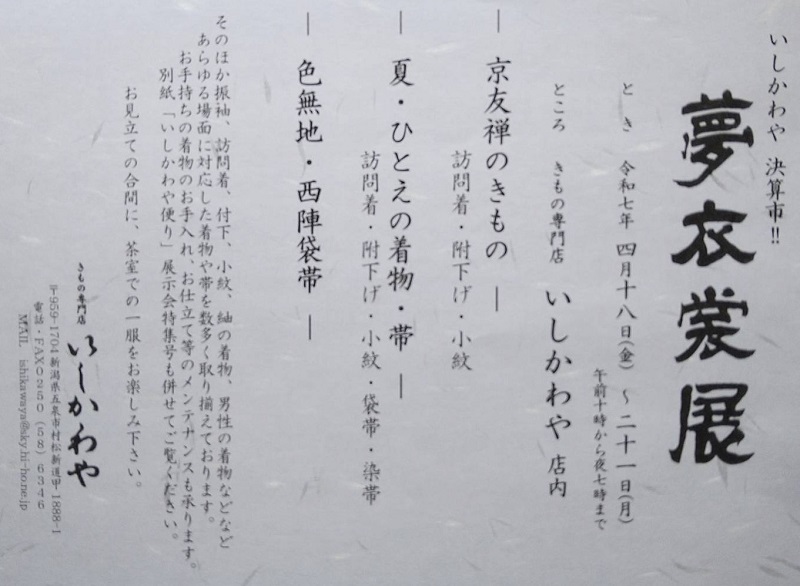 いしかわや 決算市!!
夢衣裳展
とき 令和七年 四月十八日(金) ～ 二十一日(月)
午前十時から夜七時まで
ところ きもの専門店 いしかわや 店内
― 京友禅のきもの ―
訪問着・附下げ・小紋
― 夏・ひとえの着物・帯 ―
訪問着・附下げ・小紋・袋帯・染帯
― 色無地・西陣袋帯 ―
そのほか振袖、訪問着、付下、小紋、紬の着物、男性の着物などなど
あらゆる場面に対応した着物や帯を数多く取り揃えております。
お手持ちの着物のお手入れ、お仕立て等のメンテナンスも承ります。
別紙、「いしかわや便り」展示会特集号も併せてご覧ください。
お見立ての合間に、茶室での一服をお楽しみ下さい。
きもの専門店 いしかわや
〒959-1704 新潟県五泉市村松新道甲 1888-1
電話・FAX０２５０（５８）６３４６
MAIL ishikawaya@sky.hi-ho.ne.jp